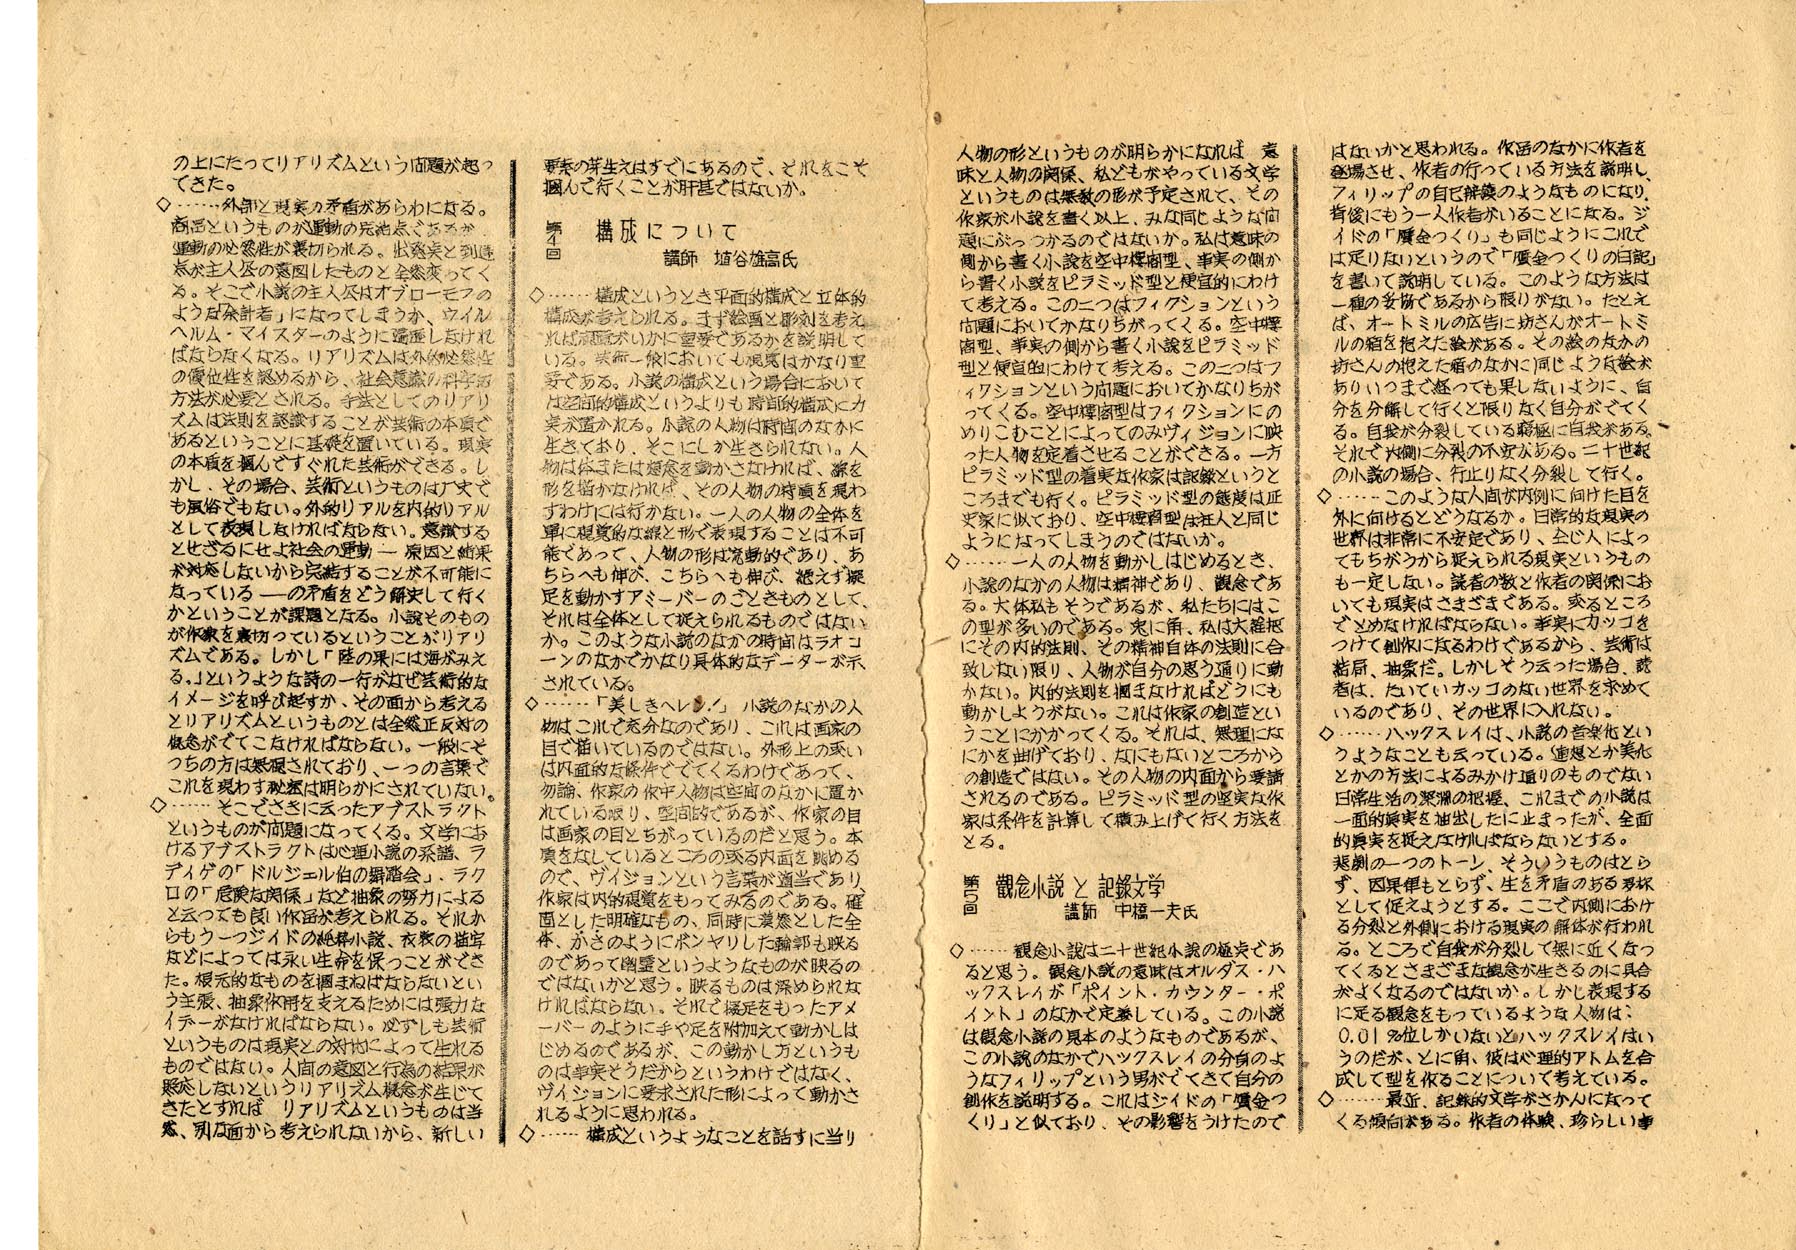 の上にたってリアリズムという問題が起っ
てきた。
◇……外部と現実の矛盾があらわになる。
商品というものが運動の完池点であるが、
運動の必然性が裏切られる。出発点と到達
点が主人公の意図したものと全然変ってく
る。そこで小説の主人公はオブローモフの
ような「余計者」になってしまうか、ウイル
ヘルム・マイスターのように遍歴しなけれ
ばならなくなる。リアリズムは外的必然性
の優位性を認めるから、社会意識の科学的
方法が必要とされる。手法としてのリアリ
ズムは法則を認識することが芸術の本質で
あるということに基礎を置いている。現実
の本質を掴んですぐれた芸術ができる。し
かし、その場合、芸術というものは歴史で
も風俗でもない。外的リアルを内的リアル
として表現しなければならない。意識する
とせざるにせよ社会の運動― 原因と結果
が対応しないから完結することが不可能に
なっている ――の矛盾をどう解決して行く
かということが課題となる。小説そのもの
が作家を裏切っているということがリアリ
ズムである。しかし「陸の果には海がみえ
る。」というような詩の一行がなぜ芸術的な
イメージを呼び起すか、その面から考える
とリアリズムというものとは全然正反対の
概念がでてこなければならない。一般にそ
っちの方は無視されており、一つの言葉で
これを現わす秘密は明らかにされていない。
◇……そこでさきに云ったアブストラクト
というものが問題になってくる。文学にお
けるアブストラクトは心理小説の系譜、ラ
ディゲの「ドルジェル伯の舞踏会」、ラク
ロの「危険な関係」など抽象の努力による
と云っても良い作品が考えられる。それか
らもう一つジイドの純粋小説、衣裳の描写
などによっては永い生命を保つことができ
た。根元的なものを掴まねばならないとい
う主張、抽象作用を支えるためには強力な
イデーがなければならない。必ずしも芸術
というものは現実との対比によって生れる
ものではない。人間の意図と行為の結果が
照応しないというリアリズム概念が生じて
きたとすれば リアリズムというものは当
然、別な面から考えられないから、新しい
要素の芽生えはすでにあるので、それをこそ
掴んで行くことが肝甚ではないか。
第4回 構成について
講師 埴谷雄高氏
◇……構成というとき平面的構成と立体的
構成が考えられる。まず絵画と彫刻を考え
れば視覚がいかに重要であるかを説明して
いる。芸術一般においても視覚はかなり重
要である。小説の構成という場合において
は空間的構成というよりも時間的構成に力
点が置かれる。小説の人物は時間のなかに
生きており、そこにしか生きられない。人
物は体または想念を動かさなければ、線を
形を描かなければ、その人物の特質を現わ
すわけには行かない。一人の人物の全体を
単に視覚的な線と形で表現することは不可
能であって、人物の形は流動的であり、あ
ちらへも伸び、こちらへも伸び、絶えず擬
足を動かすアミーバーのごときものとして、
それは全体として捉えられるものではない
か。このような小説のなかの時間はラオコ
ーンのなかでかなり具体的なデーターが示
されている。
◇……「美しきヘレン！」 小説のなかの人
物はこれで充分なのであり、これは画家の
目で描いているのではない。外形上の或い
は内面的な條件ででてくるわけであって、
勿論、作家の作中人物は空間のなかに置か
れている限り、空間的であるが、作家の目
は画家の目とちがっているのだと思う。本
質をなしているところの或る内面を眺める
ので、ヴイジョンという言葉が適当であり、
作家は内的視覚をもってみるのである。確
固とした明確なもの、同時に漠然とした全
体、かさのようにボンヤリした輪郭も映る
のであって幽霊というようなものが映るの
ではないかと思う。映るものは深められな
ければならない。それで擬足をもったアメ
ーバーのように手や足を附加えて動かしは
じめるのであるが、この動かし方というも
のは事実そうだからというわけではなく、
ヴイジョンに要求された形によって動かさ
れるように思われる。
◇……構成というようなことを話すに当り
人物の形というものが明らかになれば 意
味と人物の関係、私どもがやっている文学
というものは無数の形が予定されて、その
作家が小説を書く以上、みな同じような問
題にぶっつかるのではないか。私は意味の
側から書く小説を空中楼閣型、事実の側か
ら書く小説をピラミッド型と便宜的にわけ
て考える。この二つはフィクションという
問題においてかなりちがってくる。空中楼
閣型、事実の側から書く小説をピラミッド
型と便宜的にわけて考える。この二つはフ
ィクションという問題においてかなりちが
ってくる。空中楼閣型はフィクションにの
めりこむことによってのみヴィジョンに映
った人物を定着させることができる。一方
ピラミッド型の着実な作家は記録というと
ころまでも行く。ピラミッド型の態度は正
史家に似ており、空中楼閣型は狂人と同じ
ようになってしまうのではないか。
◇……一人の人物を動かしはじめるとき、
小説のなかの人物は精神であり、観念であ
る。大体私もそうであるが、私たちにはこ
の型が多いのである。兎に角、私は大雑把
にその内的法則、その精神自体の法則に合
致しない限り、人物が自分の思う通りに動
かない。内的法則を掴まなければどうにも
動かしようがない。これは作家の創造とい
うことにかかってくる。それは、無理にな
にかを曲げており、なにもないところから
の創造ではない。その人物の内面から要請
されるのである。ピラミッド型の堅実な作
家は条件を計算して積み上げて行く方法を
とる。
第5回 觀念小説と記録文学
講師 中橋一夫氏
◇……観念小説は二十世紀小説の極点であ
ると思う。観念小説の意味はオルダス・ハ
ックスレイが「ポイント・カウンター・ポ
イント」のなかで定義している。この小説
は観念小説の見本のようなものであるが、
この小説のなかでハックスレイの分身のよ
うなフィリップという男がでてきて自分の
創作を説明する。これはジイドの「贋金つ
くり」と似ており、その影響をうけたので
はないかと思われる。作品のなかに作者を
登場させ、作者の行っている方法を説明し、
フィリップの自己辨護のようなものになり、
背後にもう一人作者がいることになる。ジ
イドの「贋金つくり」も同じようにこれで
は足りないというので「贋金つくりの日記」
を書いて説明している。このような方法は
一種の妥協であるから限りがない。たとえ
ば、オートミルの広告に坊さんがオートミ
ルの箱を抱えた絵がある。その絵のなかの
坊さんの抱えた箱のなかに同じような絵が
ありいつまで経っても果しないように、自
分を分解して行くと限りなく自分がでてく
る。自我が分裂している窮極に自我がある。
それで内側に分裂の不安がある。二十世紀
の小説の場合、行止りなく分裂して行く。
◇……このような人間が内側に向けた目を
外に向けるとどうなるか。日常的な現実の
世界は非常に不安定であり、全じ人によっ
てもちがうから捉えられる現実というもの
も一定しない。読者の数と作者の関係にお
いても現実はさまざまである。或るところ
でとめなければならない。事実にカッコを
つけて創作になるわけであるから、芸術は
結局、抽象だ。しかしそう云った場合、読
者は、たいていカッコのない世界を求めて
いるのであり、その世界に入れない。
◇……ハックスレイは、小説の音楽化とい
うようなことも云っている。連想とか美化
とかの方法によるみかけ通りのものでない
日常生活の深淵の把握、これまでの小説は
一面的真実を抽出したに止まったが、全面
的真実を捉えなければならないとする。
悲劇の一つのトーン、そういうものはとら
ず、因果律もとらず、生を矛盾のある多様
として捉えようとする。ここで内側におけ
る分裂と外側における現実の解体が行われ
る。ところで自我が分裂して無に近くなっ
てくるとさまざまな観念が生きるのに具合
がよくなるのではないか。しかし表現する
に足る観念をもっているような人物は、
0.01％位しかいないとハックスレイはい
うのだが、とに角、彼は心理的アトムを合
成して型を作ることについて考えている。
◇……最近、記録的文学がさかんになって
くる傾向がある。作者の体験、珍らしい事